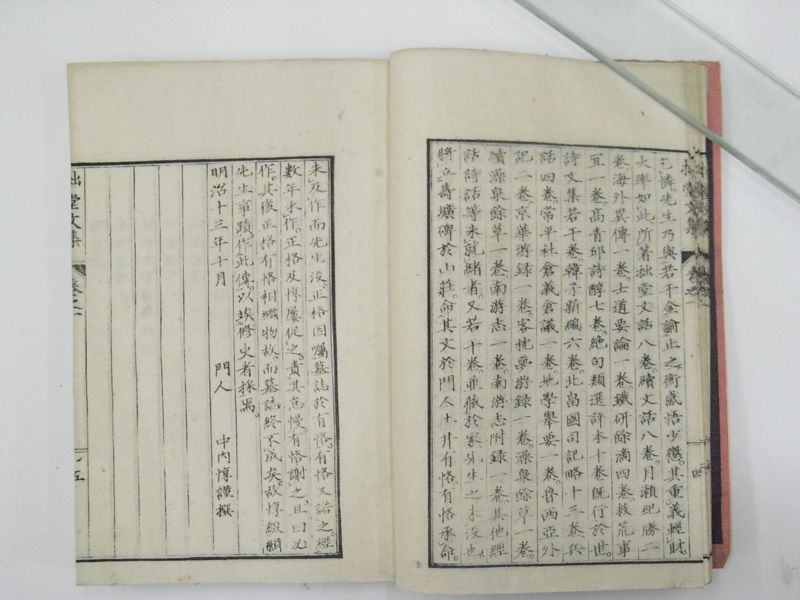 乞憐先生乃與若干金諭止之衡感悟少懲。其重義輕財
大率如此所著拙堂文話八卷。續文話八卷。月瀬紀勝二
卷海外異傳一卷士道要論一卷。鐵研餘滴四卷。救荒事
宜一卷。高青邱詩醇七卷。絶句類選評本十卷既行於世。
詩文集若干卷。韓子新編六卷。北畠國司記略十三卷。兵
話四卷。常平社倉義倉議一卷。地學舉要一卷。魯西亞外
記二卷。京華游録一卷。客枕夢游録一卷澡泉餘草一卷。
續澡泉餘草一卷南游志一卷。南游志附録一卷。其他經
話詩話等未就緒者。又若干卷。並藏於家先生之未沒也
將立壽壙碑於山莊。命其文於門人土井有恪。有恪承命。
未及作而先生沒。正格因囑墓誌於有恪。有恪又諾之。經
數年未作。正格及惇屢促之。責其怠慢。有恪謝之。且曰必
作。其後正格有恪相繼物故。而墓誌終不成矣。故惇綴緝
先生事蹟。作此傳。以俟修史者採焉。
明治十三年十月　門人　中內惇謹撰
拙堂文集　卷之一　五